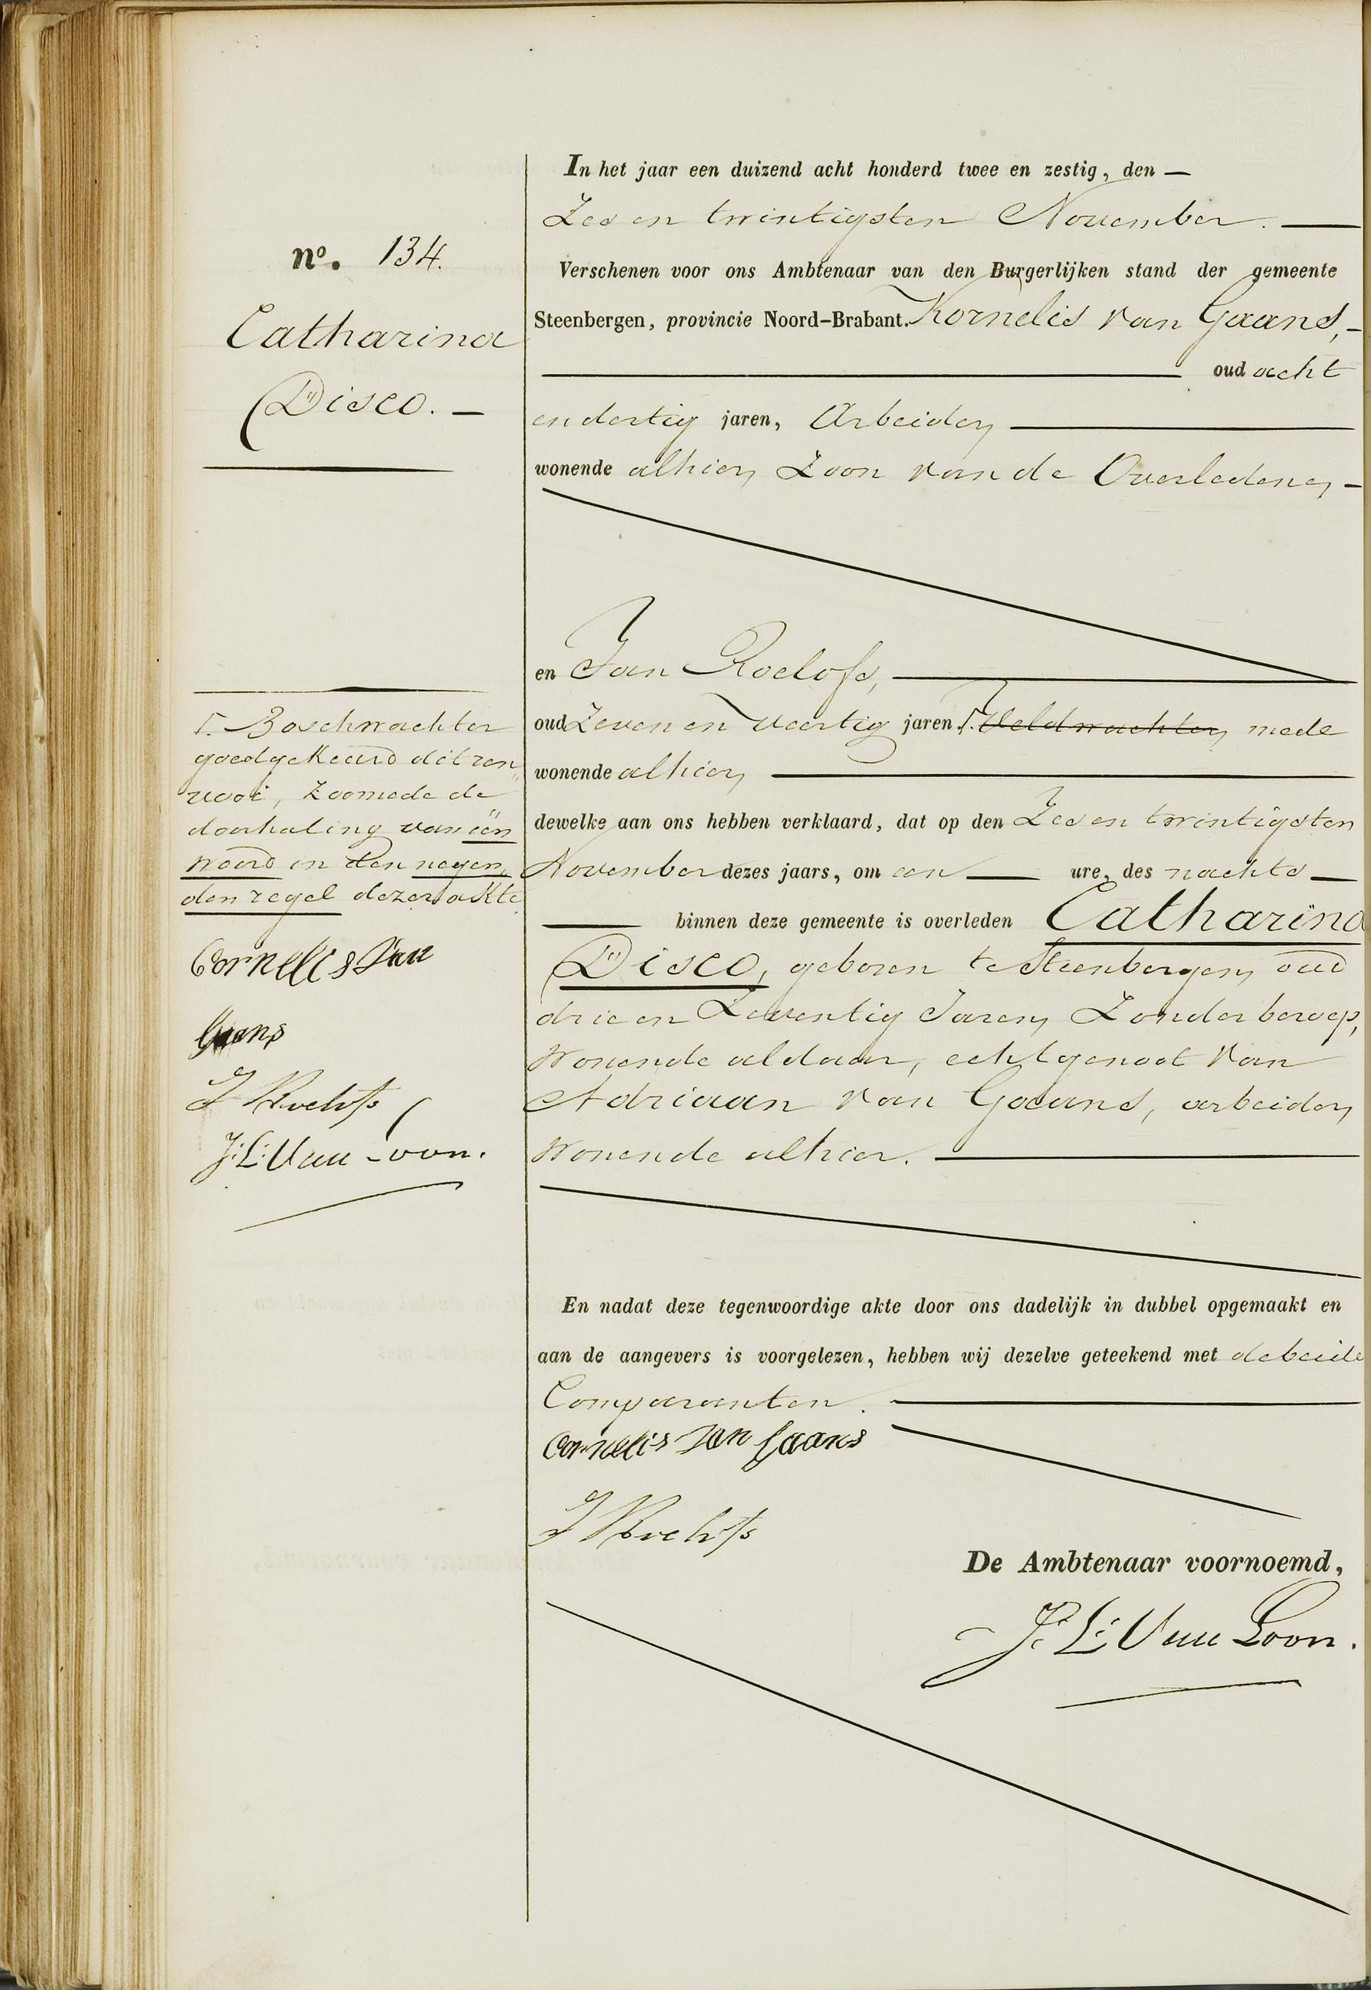 nº. 134.
Catharina
Disco. —
┌. Boschwachter
goedgekeurd dit ren
vooi, Zoomede de
doorhaling van één
woord in den negen
den regel dezer akte
Cornelis van
Gaans
J Roelofs
J: L: Van Loon.
In het jaar een duizend acht honderd twee en zestig, den —
Zes en twintigsten November. —
Verschenen voor ons Ambtenaar van den Burgerlijken stand der gemeente
Steenbergen, provincie Noord-Brabant. Kornelis van Gaans, —
oud acht
en dertig jaren, Arbeider,
wonende alhier, Zoon van de Overledene, —
en Jan Roelofs,
oud Zeven en veertig jaren, ┌. Veldwachter, mede
wonende alhier,
dewelke aan ons hebben verklaard, dat op den Zes en twintigsten
November dezes jaars, om een — ure, des nachts —
— binnen deze gemeente is overleden Catharina
Disco, geboren te Steenbergen, oud
drie en Zeventig Jaren, Zonder beroep,
wonende aldaar, echtgenoot van
Adriaan van Gaans, arbeider,
wonende alhier. —
En nadat deze tegenwoordige akte door ons dadelijk in dubbel opgemaakt en
aan de aangevers is voorgelezen, hebben wij dezelve geteekend met de beide
Comparanten.
Cornelis van Gaans
J Roelofs
De Ambtenaar voornoemd,
J: L: Van Loon.